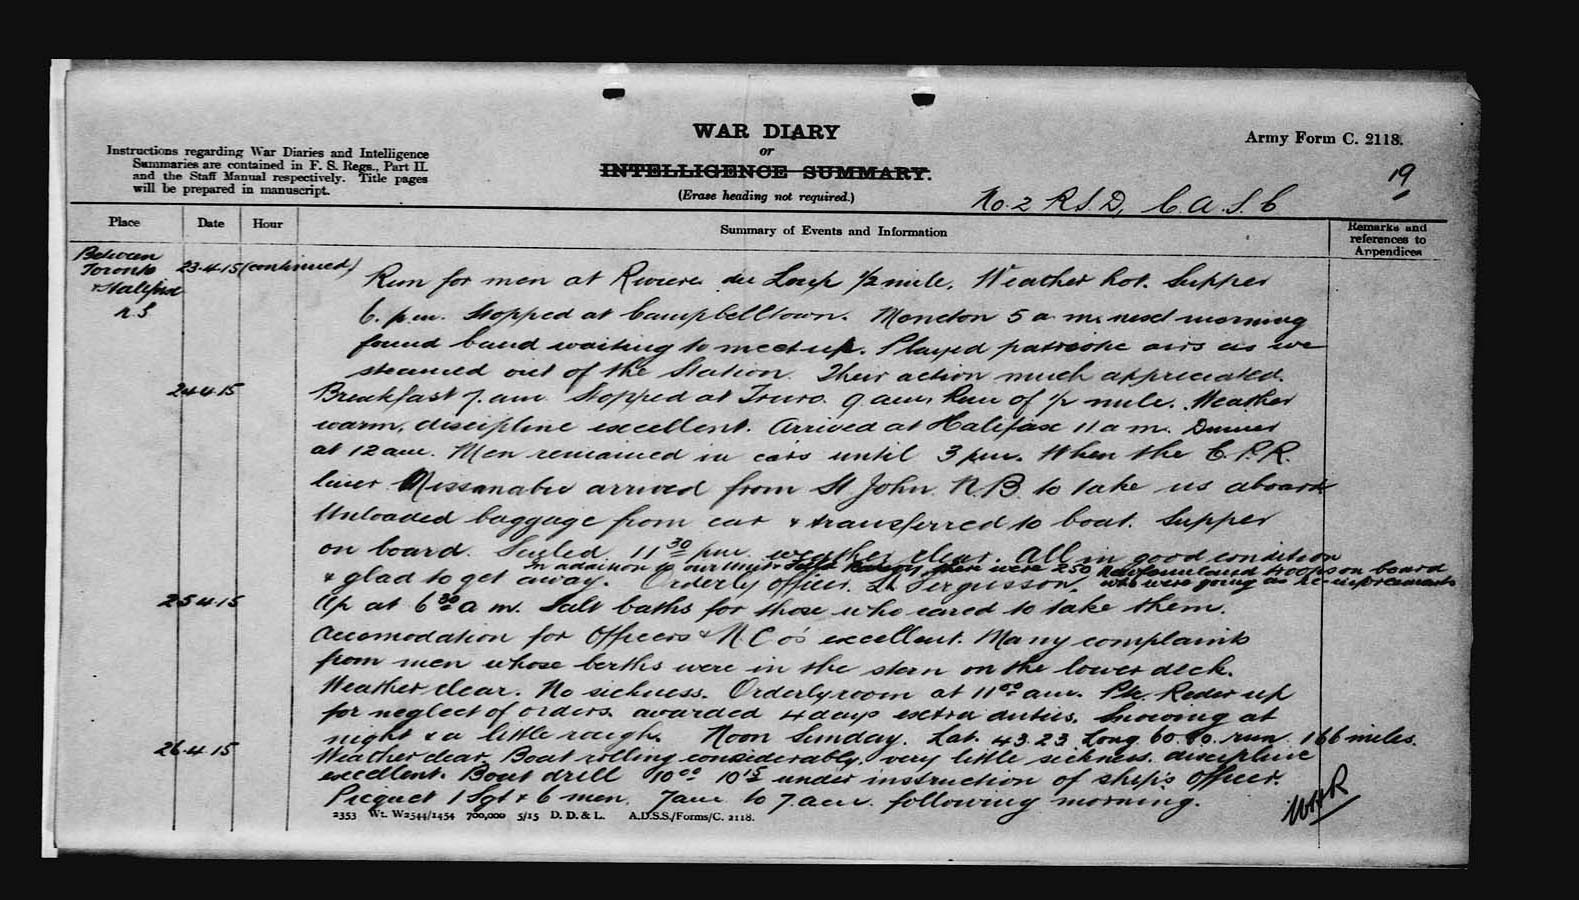 WAR DIARY
or
INTELLIGENCE SUMMARY.
(Erase heading not required.)
Army Form C. 2118.
Instructions regarding War Diaries and Intelligence
Summaries are contained in F. S. Regs., Part II.
and the Staff Manual respectively. Title pages
will be prepared in manuscript.
19
No. 2 R.S.D, C.A.S.C
Place
Date
Hour
Summary of Events and Information
Remarks and
references to
Appendices
Between
Toronto
& Halifax
N.S
23.4.15 (continued)
Run for men at Riviere du Loup 1/2 mile. Weather hot. Supper
6. p.m. Stopped at Campbelltown. Moncton 5 a.m. next morning
found band waiting to meet us. Played patriotic airs as we
steamed out of the Station. Their action much appreciated.
24.4.15
Breakfast 7. am. Stopped at Truro. 9. am. Run of 1/2 mile. Weather
warm, discipline excellent. Arrived at Halifax 11 a m. Dinner
at 12 am. Men remained in cars until 3 pm. When the C.P.R.
liner Missanabie arrived from St John N.B. to take us aboard
Unloaded baggage from car & transferred to boat. Supper
on board. Sailed 11 30 pm. weather clear. All in good condition
In addition to our Unit there were 250 Newfoundland troops on board
& glad to get away. Orderly officer. Lt Fergusson. who were going as re-inforcements
25.4.15
Up at 6 30 a m. Salt baths for those who cared to take them.
Accomodation for Officers & N C o's excellent. Many complaints
from men whose berths were in the stern on the lower deck.
Weather, clear. No sickness. Orderly room at 11 00 am. Pte. Reder up
for neglect of orders. awarded 4 days extra duties. Snowing at
night & a little rough. Noon Sunday. Lat. 43.23 Long 60. run 166 miles.
26.4.15
Weather clear. Boat rolling considerably. very little sickness. discipline
excellent. Boat drill 10 00 10 15 under instruction of ship's Officer.
Picquet 1 Sgt & 6 men. 7 am. to 7. am. following morning.
WHR
2353 Wt. W2544/1454 700,000 5/15 D. D. & L. A.D.S.S./Forms/C. 2118.